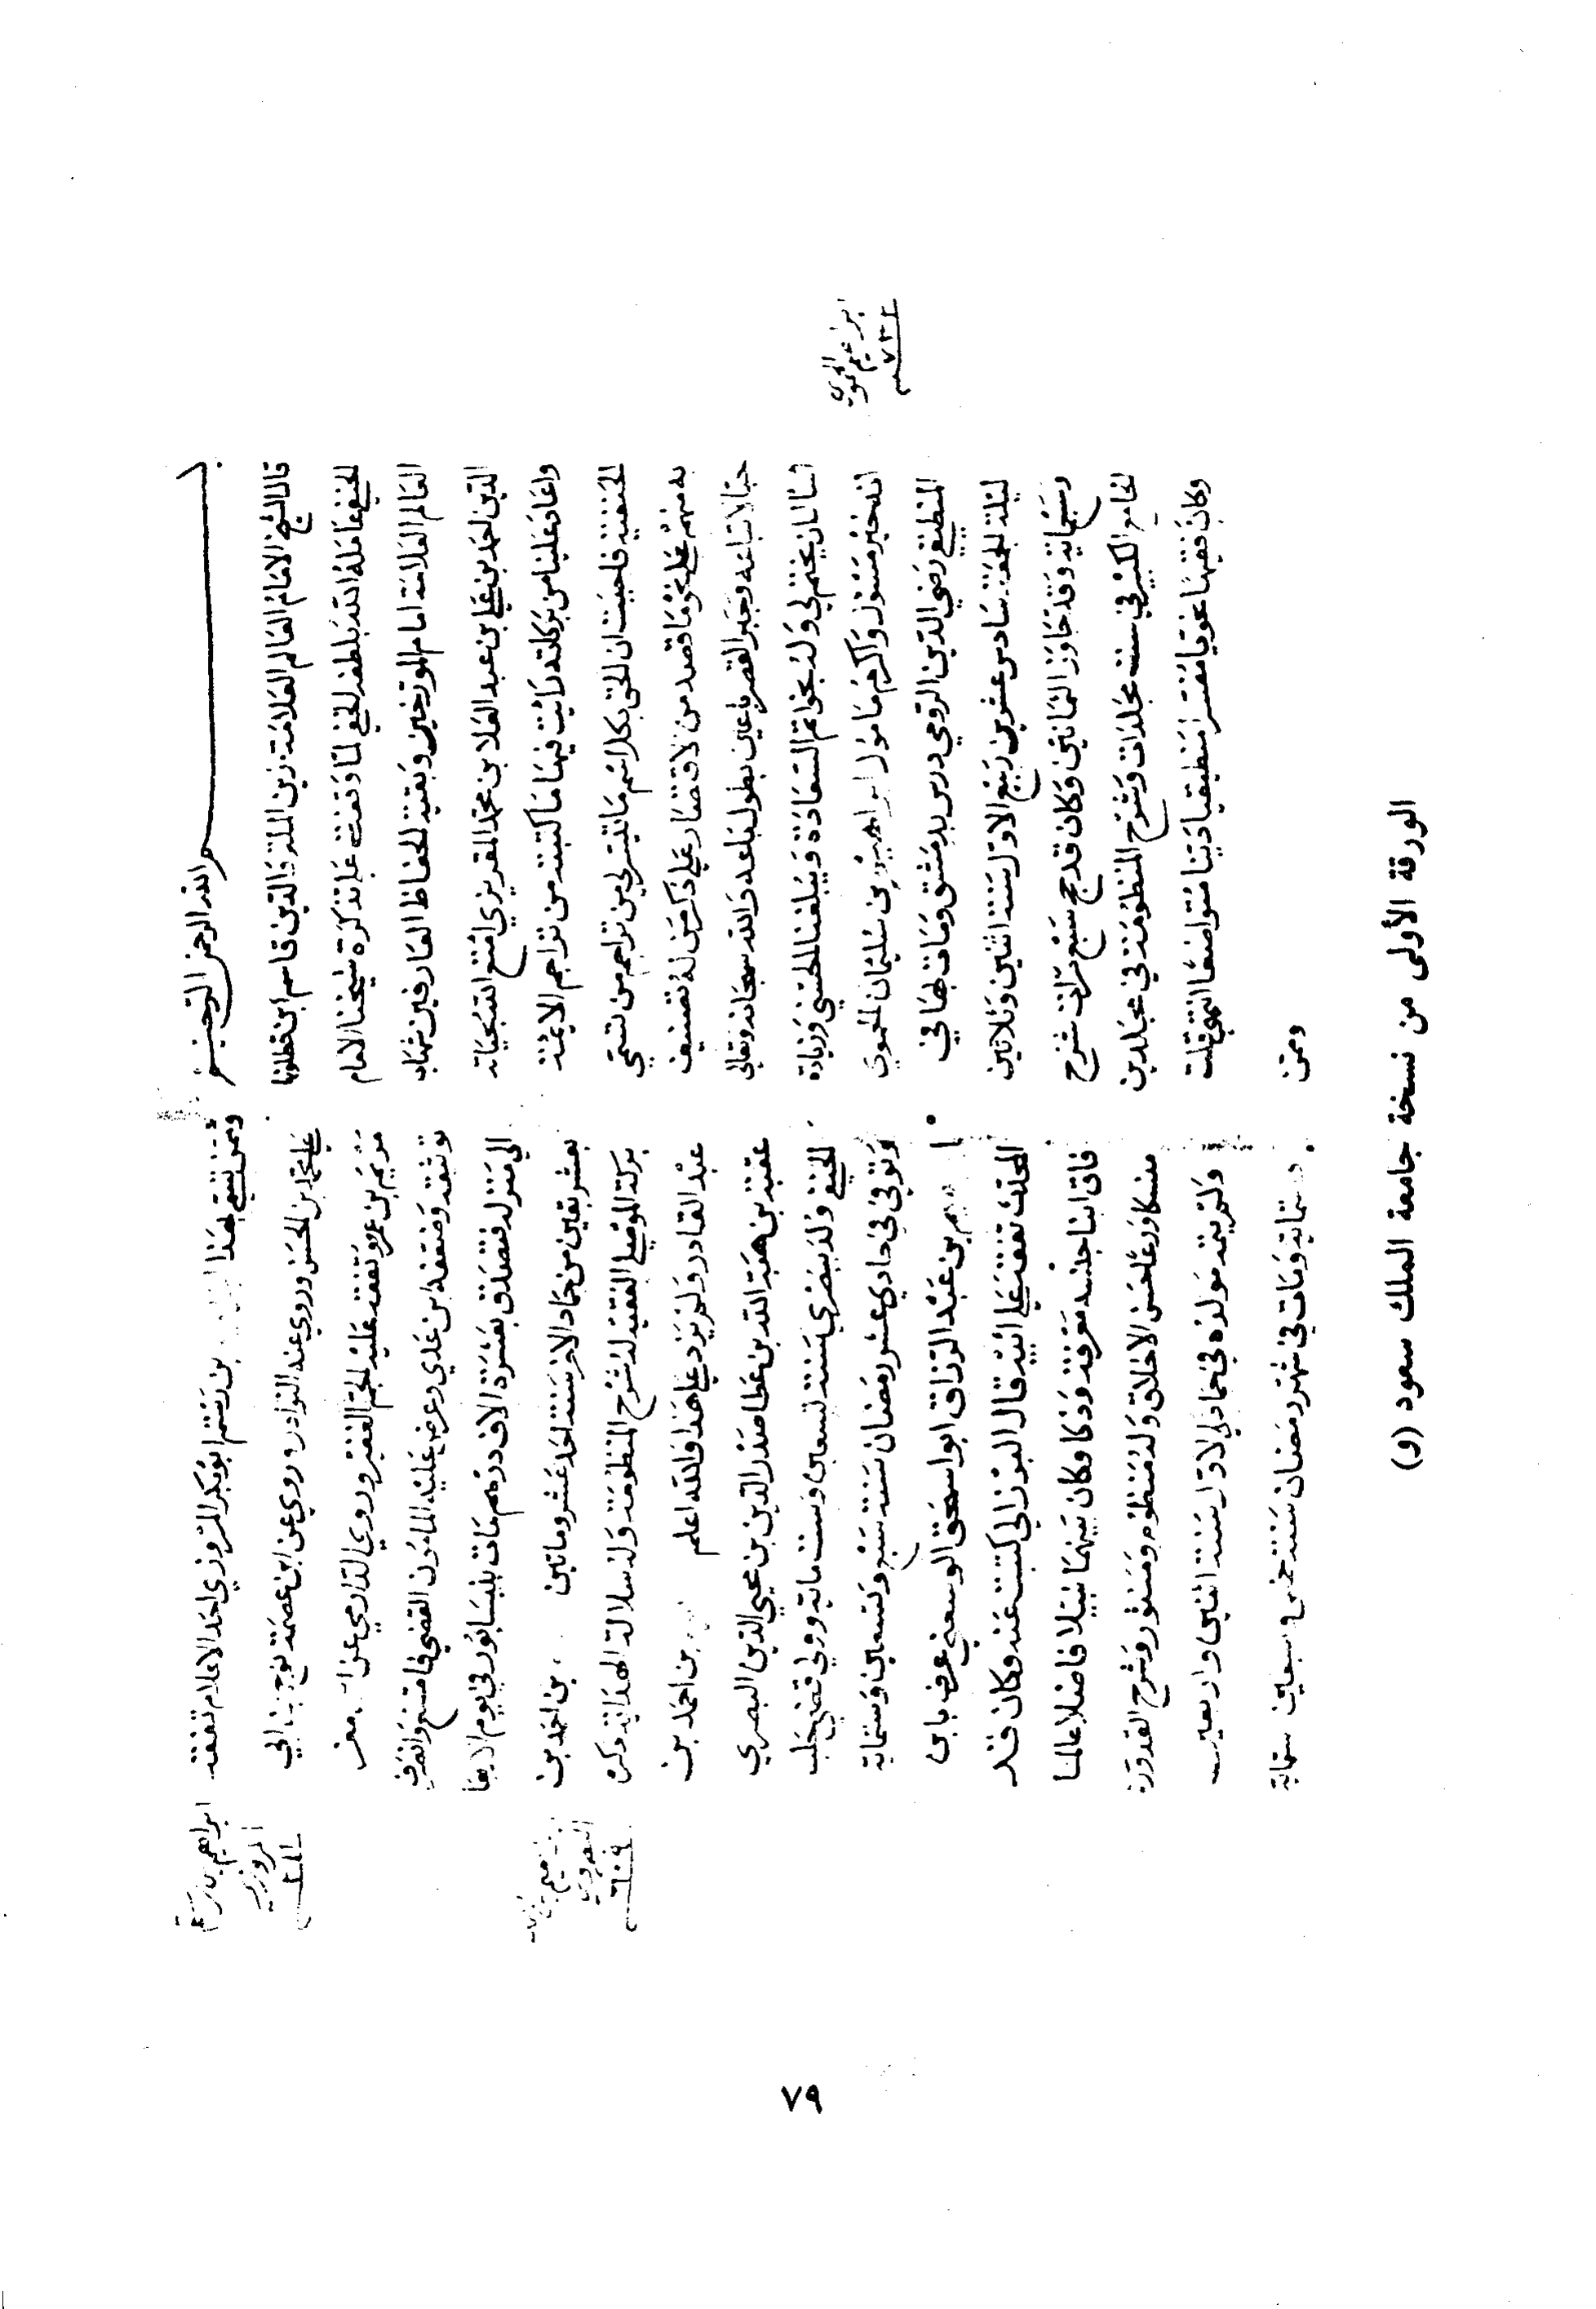 بسم الله الرحمن الرحيم
قال الشيخ الامام العالم العلامة زين الملة والدين قاسم ابن قطلوبغا
الحنفي عامله الله بلطفه الخفي لما وقفت على تذكرة شيخنا الامام
العالم العلامة امام المورخين وبقية الحفاظ العارفين شهاب
الدين احمد بن علي بن عبد العلا بن محمد المقريزي امتع الله بحياته
واعاد علينا من بركاته رايت فيها ما كتبته من تراجم الائمة
الحنفية فاحببت ان الحق بكل اسم ما تيسر لي من تراجم من تسمى
به منهم على نحو ما قصد من الاقتصار على ذكر من له تصنيف
حبا لاتباعه وجبر القصر باعي بطول باعه والله سبحانه وتعالى
اسال ان يختم لي وله بخواتم السعادة ويبلغنا الحسنى وزيادة
انه خير مسئول واكرم مامول ابراهيم بن سليمان الحموي
المنطيقي رضي الدين الرومي درس بدمشق ومات بها في
ليلة الجمعة سادس عشرين ربيع الاول سنة اثنين وثلاثين
وسبعمائة وقد جاوز الثمانين وكان قد حج سبع مرات شرح
الجامع الكبير في ست مجلدات وشرح المنظومة في مجلدين
وكان فقيها نحويا مفسرا منطيقيا دينا متواضعا انتهى قلت
وممن
ابراهيم الحموي
سنة ٧٣٢
وممن تسمى بهذا بن رستم ابو بكر المروزي احد الاعلام تفقه
على محمد بن الحسن وروى عنه النوادر وروى عن ابن عصمة نوح بن ابي
مريم بن عمرو تفقه عليه الجم الغفير وروى الدارمي عن
توثيقه وضعفه ابن عدي وعرض عليه المامون القضى فامتنع وانصرف
الى منزله فتصدق بعشرة الاف درهم مات بنيسابور في يوم الاربعا
لعشر بقين من جماد الاخر سنة احد عشر ومائتين بن احمد بن
بركة الموصلي الفقيه له شرح المنظومة وله سلالة الهداية ذكره
عبد القادر ولم يزد على هذا والله اعلم بن احمد بن
عقبة بن هبة الله بن عطا صدر الدين بن محيي الدين البصري
الحنفي ولد ببصرى سنة تسعين وست مائة وولي قضى حلب
وتوفي في حادي عشر رمضان سنة سبع وتسعين وستمائة
بن عبد الرزاق ابو اسحق الرسعني عرف بابن
المحدث تفقه على ابيه قال البرزالي كتبت عنه وكان قد
فاق ابنا جنسه معرفة وذكا وكان نبيها نبيلا فاضلا عالما
منسكا ورعا حسن الاخلاق وله منظوم ومنثور وشرح القدورة
ولم يتمه مولده في جمادي الاول سنة اثنين واربعين
وستمائة ومات في شهر رمضان سنة خمس وسبعين ستمائة
ابراهيم بن رستم
المروزي
سنة
الورقة الأولى من نسخة جامعة الملك سعود (و)
٧٥